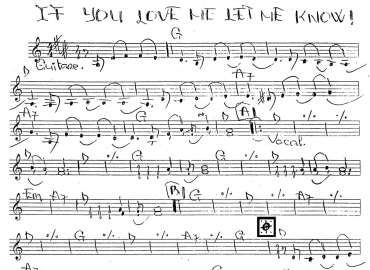 IF YOU LOVE ME LET ME KNOW!
G
D Guitare.
A7
A7 G D A
Vocal.
D % G D % G
Em A7 D B G % D %
D % G A7 % G % D
A7